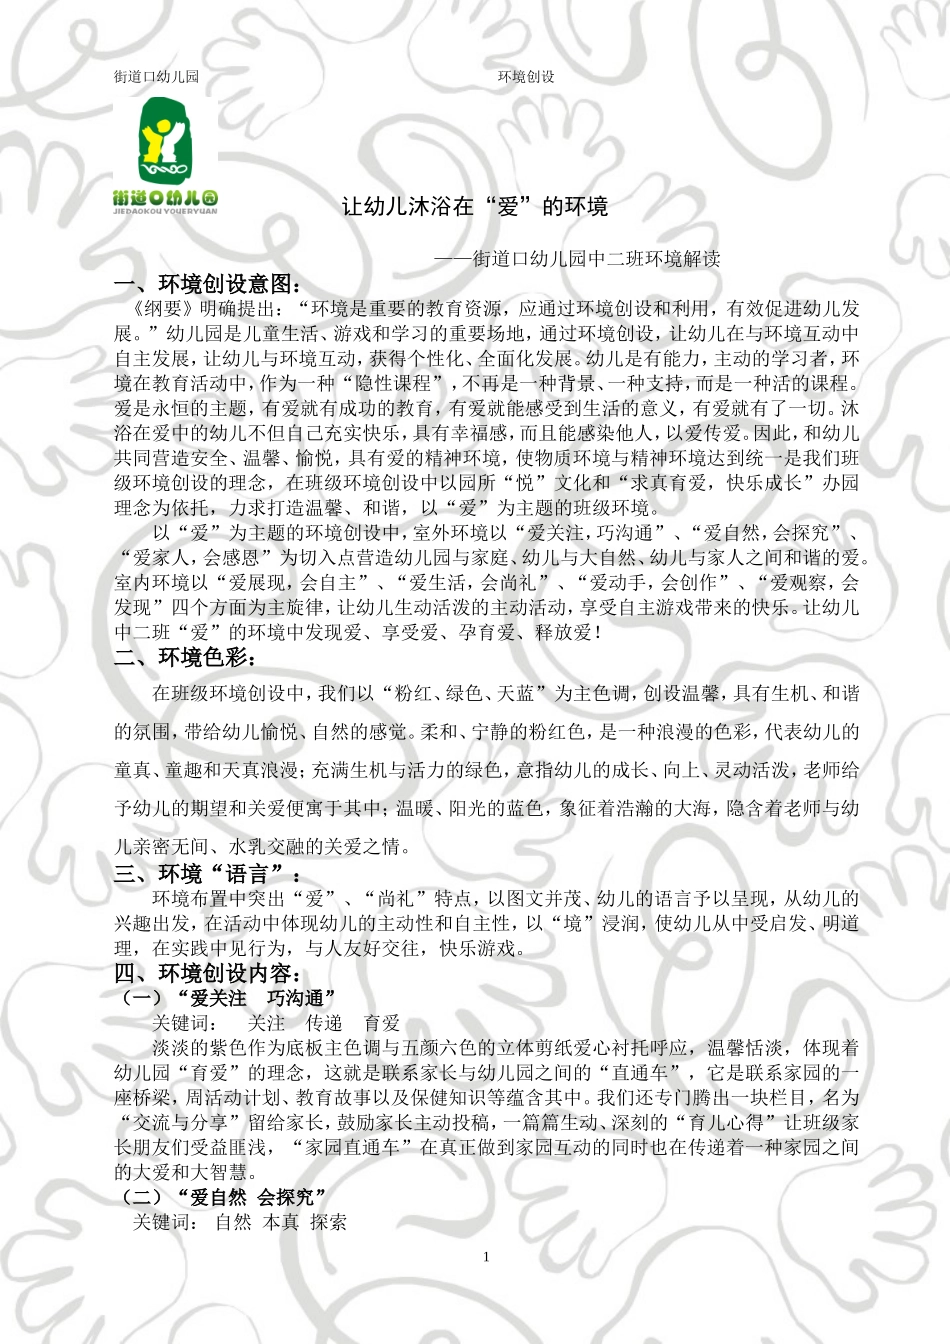 街道口幼儿园 环境创设
街道口幼儿园
JIEDAOKOU YOUERYUAN
让幼儿沐浴在“爱”的环境
——街道口幼儿园中二班环境解读
一、环境创设意图：
《纲要》明确提出：“环境是重要的教育资源，应通过环境创设和利用，有效促进幼儿发
展。”幼儿园是儿童生活、游戏和学习的重要场地，通过环境创设，让幼儿在与环境互动中
自主发展，让幼儿与环境互动，获得个性化、全面化发展。幼儿是有能力，主动的学习者，环
境在教育活动中，作为一种“隐性课程”，不再是一种背景、一种支持，而是一种活的课程。
爱是永恒的主题，有爱就有成功的教育，有爱就能感受到生活的意义，有爱就有了一切。沐
浴在爱中的幼儿不但自己充实快乐，具有幸福感，而且能感染他人，以爱传爱。因此，和幼儿
共同营造安全、温馨、愉悦，具有爱的精神环境，使物质环境与精神环境达到统一是我们班
级环境创设的理念，在班级环境创设中以园所“悦”文化和“求真育爱，快乐成长”办园
理念为依托，力求打造温馨、和谐，以“爱”为主题的班级环境。
以“爱”为主题的环境创设中，室外环境以“爱关注，巧沟通”、“爱自然，会探究”、
“爱家人，会感恩”为切入点营造幼儿园与家庭、幼儿与大自然、幼儿与家人之间和谐的爱。
室内环境以“爱展现，会自主”、“爱生活，会尚礼”、“爱动手，会创作”、“爱观察，会
发现”四个方面为主旋律，让幼儿生动活泼的主动活动，享受自主游戏带来的快乐。让幼儿
中二班“爱”的环境中发现爱、享受爱、孕育爱、释放爱！
二、环境色彩：
在班级环境创设中，我们以“粉红、绿色、天蓝”为主色调，创设温馨，具有生机、和谐
的氛围，带给幼儿愉悦、自然的感觉。柔和、宁静的粉红色，是一种浪漫的色彩，代表幼儿的
童真、童趣和天真浪漫；充满生机与活力的绿色，意指幼儿的成长、向上、灵动活泼，老师给
予幼儿的期望和关爱便寓于其中；温暖、阳光的蓝色，象征着浩瀚的大海，隐含着老师与幼
儿亲密无间、水乳交融的关爱之情。
三、环境“语言”：
环境布置中突出“爱”、“尚礼”特点，以图文并茂、幼儿的语言予以呈现，从幼儿的
兴趣出发，在活动中体现幼儿的主动性和自主性，以“境”浸润，使幼儿从中受启发、明道
理，在实践中见行为，与人友好交往，快乐游戏。
四、环境创设内容：
（一）“爱关注　巧沟通”
关键词：　关注　传递　育爱
淡淡的紫色作为底板主色调与五颜六色的立体剪纸爱心衬托呼应，温馨恬淡，体现着
幼儿园“育爱”的理念，这就是联系家长与幼儿园之间的“直通车”，它是联系家园的一
座桥梁，周活动计划、教育故事以及保健知识等蕴含其中。我们还专门腾出一块栏目，名为
“交流与分享”留给家长，鼓励家长主动投稿，一篇篇生动、深刻的“育儿心得”让班级家
长朋友们受益匪浅，“家园直通车”在真正做到家园互动的同时也在传递着一种家园之间
的大爱和大智慧。
（二）“爱自然 会探究”
关键词： 自然 本真 探索
1